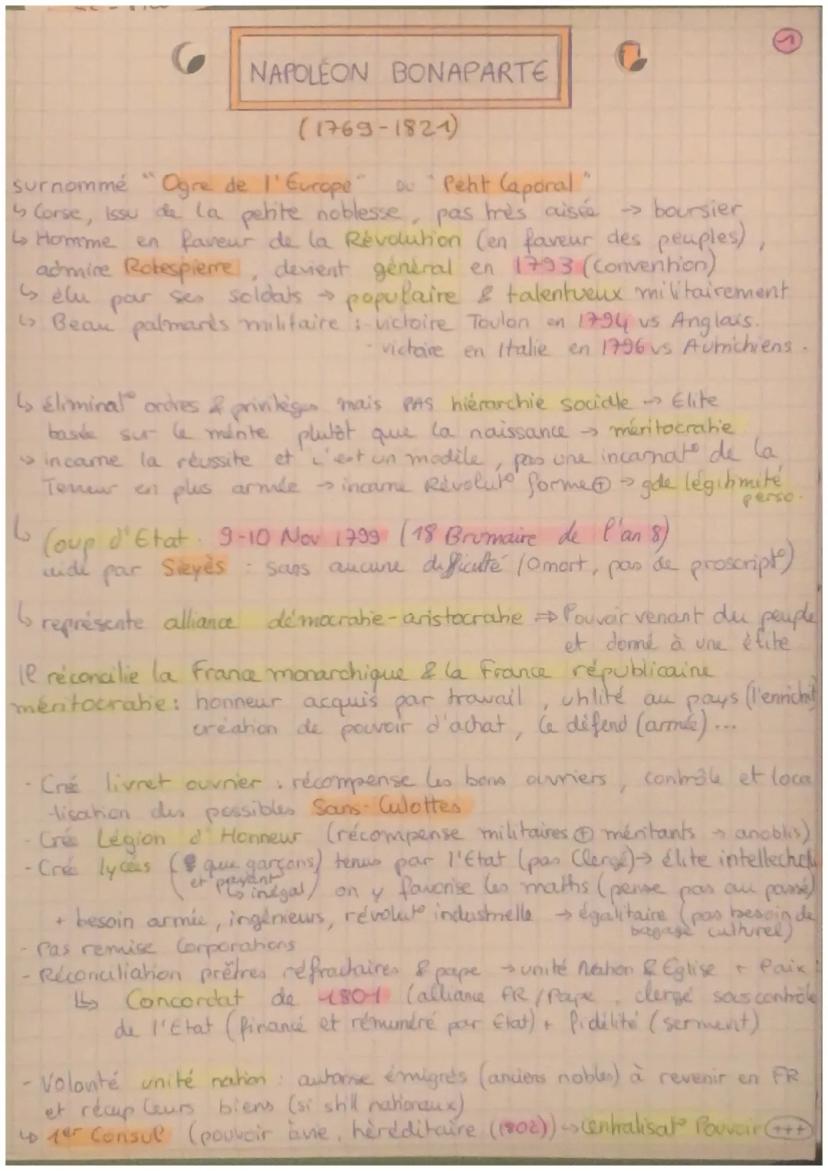 1
NAPOLÉON BONAPARTE
(1769-1821)
surnommé "Ogre de l'Europe" ou "Petit Caporal"
↳ Corse, issu de la petite noblesse, pas très aisée → boursier
↳ Homme en faveur de la Révolution (en faveur des peuples),
admire Robespierre, devient général en 1793 (Convention)
↳ élu par ses soldats → populaire & talentueux militairement
↳ Beau palmarès militaire : - victoire Toulon en 1794 vs Anglais.
- victoire en Italie en 1796 vs Autrichiens.
↳ éliminat° ordres & privilèges mais PAS hiérarchie sociale → Élite
basée sur le mérite plutôt que la naissance → méritocratie
↳ incarne la réussite et c'est un modèle, pas une incarnat° de la
Terreur en plus armée → incarne Révolut° forme⊕ → gde légitimité
perso.
↳ Coup d'Etat : 9-10 Nov 1799 (18 Brumaire de l'an 8)
aidé par Sieyès : sans aucune difficulté (0 mort, pas de proscript°)
↳ représente alliance démocratie-aristocratie ⇒ Pouvoir venant du peuple
et donné à une élite
Il réconcilie la France monarchique & la France républicaine
méritocratie : honneur acquis par travail, utilité au pays (l'enrichit
création de pouvoir d'achat, le défend (armée)...
- Créé livret ouvrier : récompense les bons ouvriers, contrôle et loca
-lisation des possibles Sans-Culottes
- Créé Légion d'Honneur (récompense militaires ⊕ méritants → anoblis)
- Créé lycées (que garçons) tenus par l'Etat (pas Clergé) → élite intellectuelle
et payant
↳ inégal) on y favorise les maths (pense pas au passé)
+ besoin armée, ingénieurs, révolut° industrielle → égalitaire (pas besoin de
bagage culturel)
- Pas remise Corporations
- Réconciliation prêtres réfractaires & pape → unité Nation & Eglise + Paix
↳ Concordat de 1801 (alliance FR/Pape, clergé sous contrôle
de l'Etat (financé et rémunéré par Etat) + fidélité (serment)
- Volonté unité nation : autorise émigrés (anciens nobles) à revenir en FR
et récup leurs biens (si still nationaux)
↳ 1er Consul (pouvoir à vie, héréditaire (1802)) → Centralisat° Pouvoir (+++)